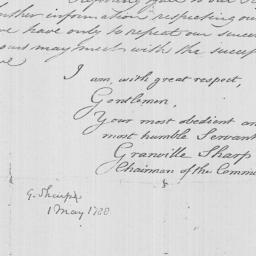 further information respecting our
we have only to repeat our
may meet with the
I am, with great respect,
Gentlemen,
Your most obedient an
most humble Servant
Granville Sharp
Chairman of the Comm
G. Sharp
1 May 1788